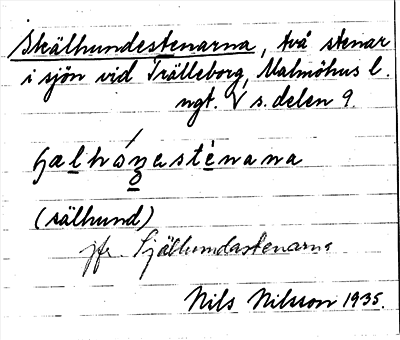 Skälhundestenarna, två stenar
i sjön vid Trälleborg, Malmöhus l.
ngt. V s. delen 9.
sælhóŋastènana
(sälhund)
jfr. Sjählundastenarna
Nils Nilsson 1935.